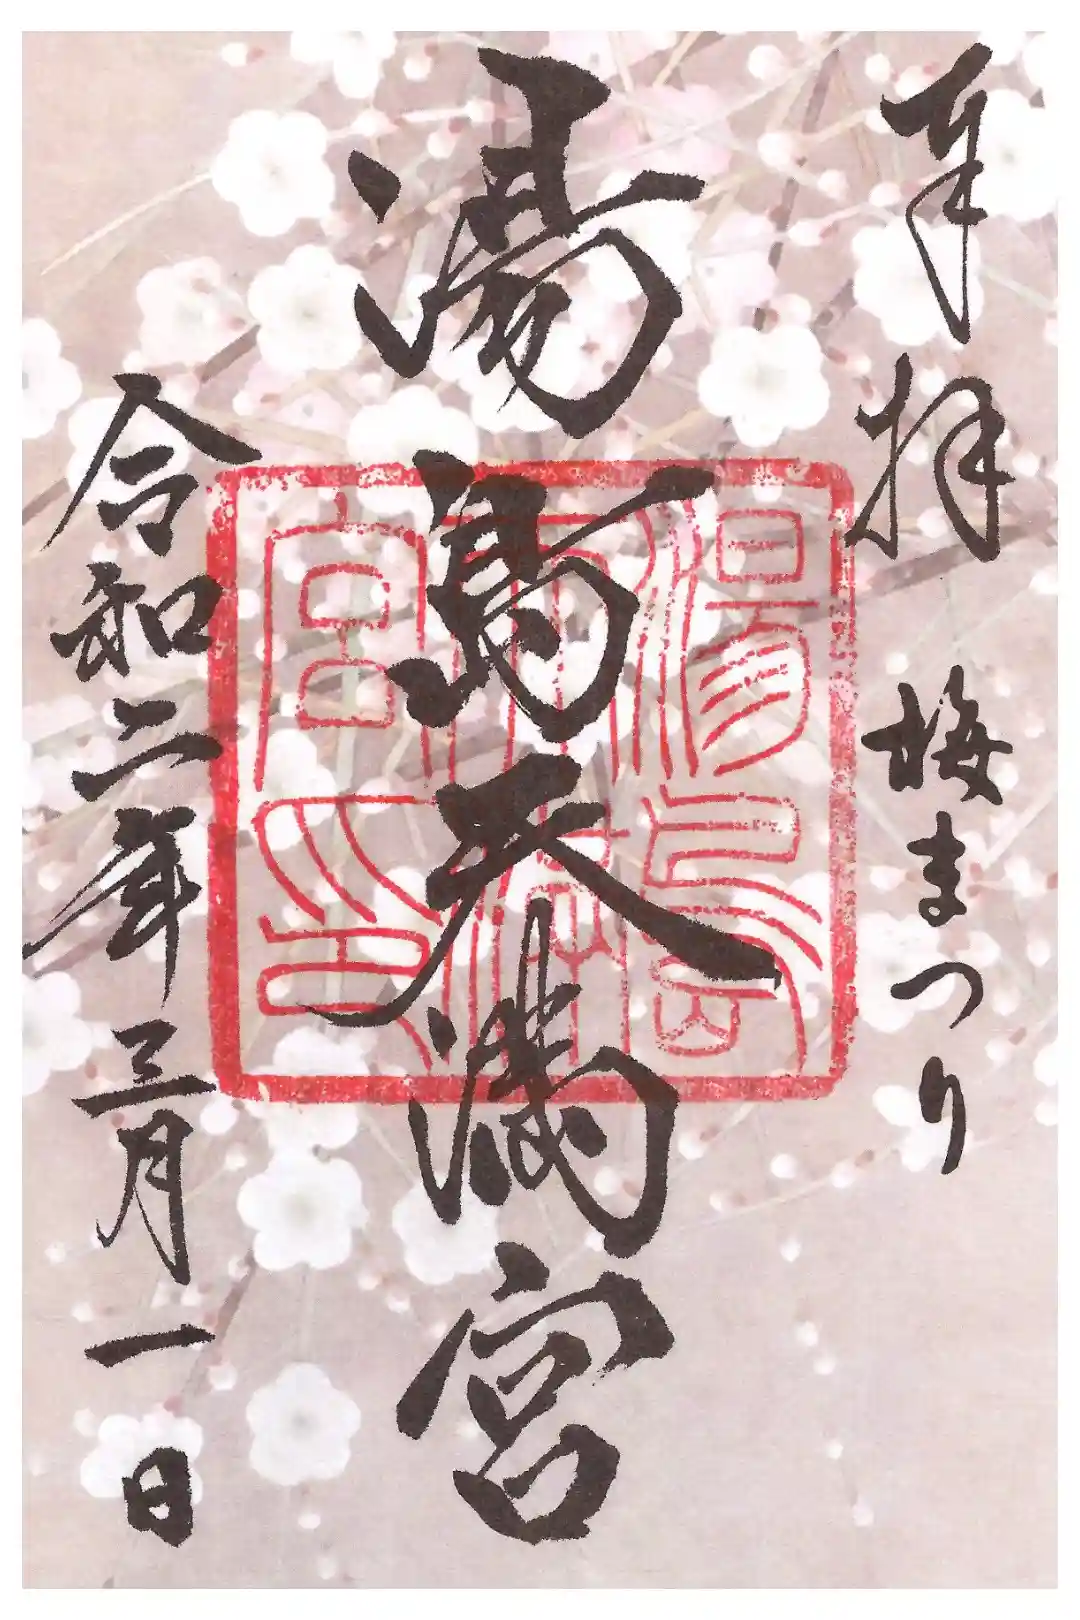 奉拝 梅まつり
湯島天満宮
湯島
天満
宮印
令和二年三月一日